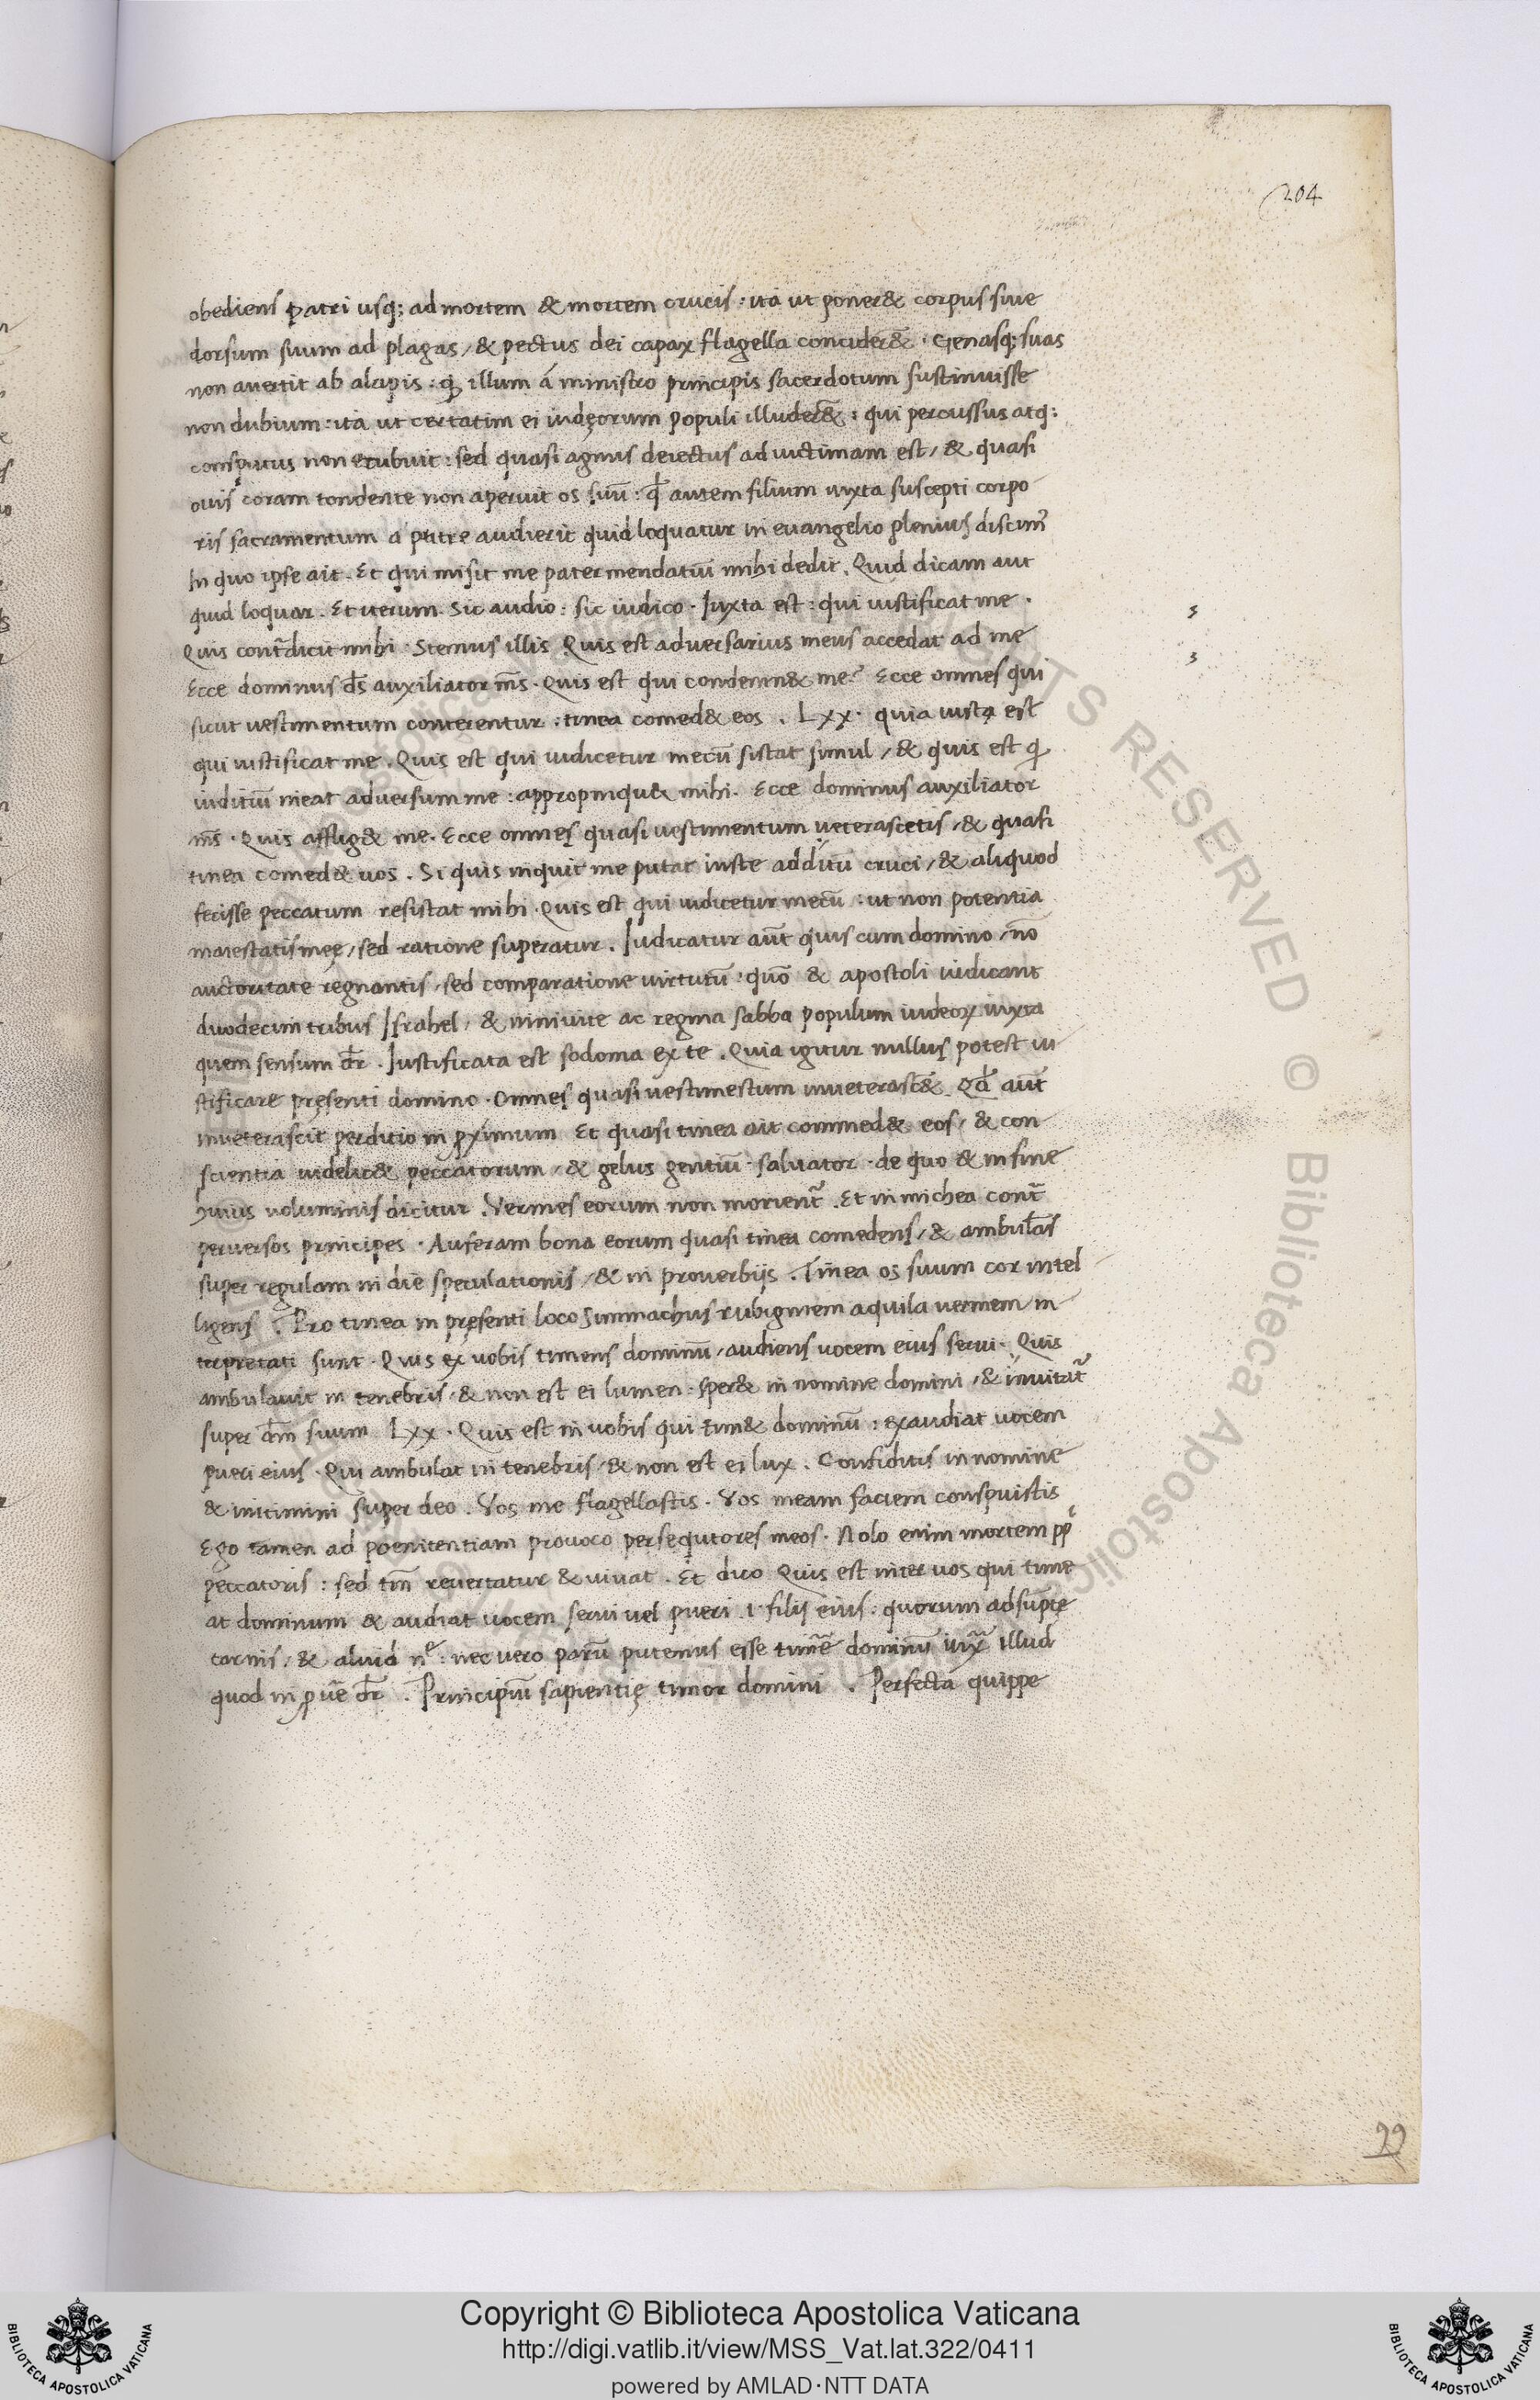 204
obediens patri usq; ad mortem & mortem crucis : ita ut poner& corpus siue
dorsum suum ad plagas / & pectus dei capax flagella concider& · Genasq; suas
non auertit ab alapis : quod illum á ministro principis sacerdotum sustinuisse
non dubium : ita ut certatim ei iudęorum populi illuder& : qui percussus atq;
consputus non erubuit : sed quasi agnus deiectus ad uictimam est / & quasi
ouis coram tondente non aperuit os suū : qd̄ autem filium iuxta suscepti corpo
ris sacramentum a patre audierit quid loquatur in euangelio plenius discim᷒
In quo ipse ait . Et qui misit me pater mendatiū mihi dedit . Quid dicam aut
quid loquar . Et iterum . Sic audio : sic iudico . Iuxta est : qui iustificat me .
Quis cont̄dicit mihi · Stemus illis Quis est aduersarius meus accedat ad me
Ecce dominus ds̄ auxiliator ms̄ · Quis est qui condemn& me? Ecce omnes qui
sicut uestimentum conterentur : tinea comed& eos . Lxx · quia iusta est
qui iustificat me . Quis est qui iudicetur mecū sistat simul / & quis est q
iuditiū ineat aduersum me : appropinqu& mihi . Ecce dominus auxiliator
ms̄ · Quis afflig& me . Ecce omnes quasi uestimentum ueterascetis / & quasi
tinea comed& uos . Si quis inquit me putat iuste additū cruci / & aliquod
fecisse peccatum resistat mihi Quis est qui iudicetur mecū : ut non potentia
maiestatis meę / sed ratione superatur . Iudicatur aūt quis cum domino / nō
auctoritate regnantis / sed comparatione uirtutū : quō & apostoli iudicant
duodecim tribus Israhel / & niniuite ac regina sabba populum iudeoꝝ iuxta
quem sensum dr̄ . Iustificata est sodoma ex te . Quia igitur nullus potest iu
stificare pręsenti domino . Omnes quasi uestimestum inueterasc& Qd̄ aūt
inueterascit perditio in ꝓximum Et quasi tinea ait commed& eos / & con
scientia uidelic& peccatorum / & gelus gentiū · saluator · de quo & in fine
huius uoluminis dicitur . Vermes eorum non morient᷑ . Et in michea cont᷑
peruersos principes · Auferam bona eorum quasi tinea comedens / & ambul̄as
super regulam in die speculationis / & in prouerbijs . Tinea os suum cor intel
ligens . Pro tinea in pręsenti loco Simmachus rubiginem aquila uermem in
terpretati sunt · Quis ex uobis timens dominū / audiens uocem eius serui · Quis
ambulauit in tenebris / & non est ei lumen · sper& in nomine domini / & inuitat᷑
super dm̄ suum Lxx · Quis est in uobis qui tim& dominū : exaudiat uocem
pueri eius · Qui ambulat in tenebris / & non est ei lux . Confiditis in nomine
& initimini super deo . Vos me flagellastis . Vos meam faciem conspuistis
Ego tamen ad poenitentiam prouoco persequtores meos . Nolo enim mortem
peccatoris : sed tm̄ reuertatur & uiuat . Et dico Quis est inter uos qui time
at dominum & audiat uocem serui uel pueri .i. filij eius : quorum adsūpte
carnis / & aluid nᵉ : nec uero parū putemus esse timē̄ dominū iux̄ illud
quod in ꝓue᷑ dr̄ . Principiū sapientię timor domini . Perfecta quippe
99
ALL RIGHTS RESERVED © Biblioteca Apostolica
Copyright © Biblioteca Apostolica Vaticana
http://digi.vatlib.it/view/MSS_Vat.lat.322/0411
powered by AMLAD·NTT DATA
BIBLIOTECA APOSTOLICA VATICANA
BIBLIOTECA APOSTOLICA VATICANA